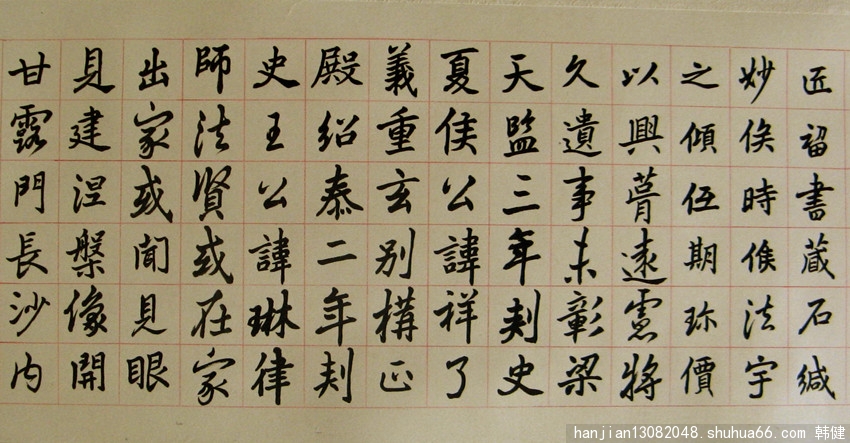 匠福書蔵石緘
妙俟時候法宇
之傾伍期珎價
以興遠慮將
久遺事未彰梁
天監三年刺史
夏侯公諱祥了
義重玄别構正
殿紹泰二年刺
史王公諱琳律
師法賢或在家
出家或聞見眼
見建涅槃像開
甘露門長沙内
hanjian13082048.shuhua66.com 韩健